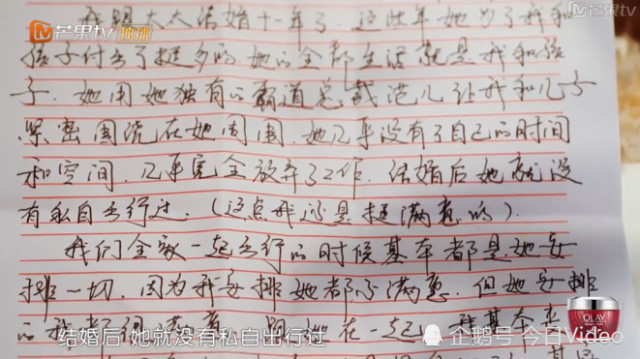 芒果TV 独播
芒果TV
我跟太太结婚十一年了,这些年她为了我和
孩子付出了挺多的,她的全部生活就是我和孩
子.她用她独有的霸道总裁范儿让我和儿子
紧密围绕在她周围.她几乎没有了自己的时间
和空间,几乎完全放弃了工作.结婚后她就没
有私自出行过.(这点我还是挺满意的).
我们全家一起出行的时候基本都是她安
排一切.因为我安排她都不满意.但她安排
的我都
她在一起 我基本
结婚后 她就没有私自出行过
企鹅号 今日Video
OLAY